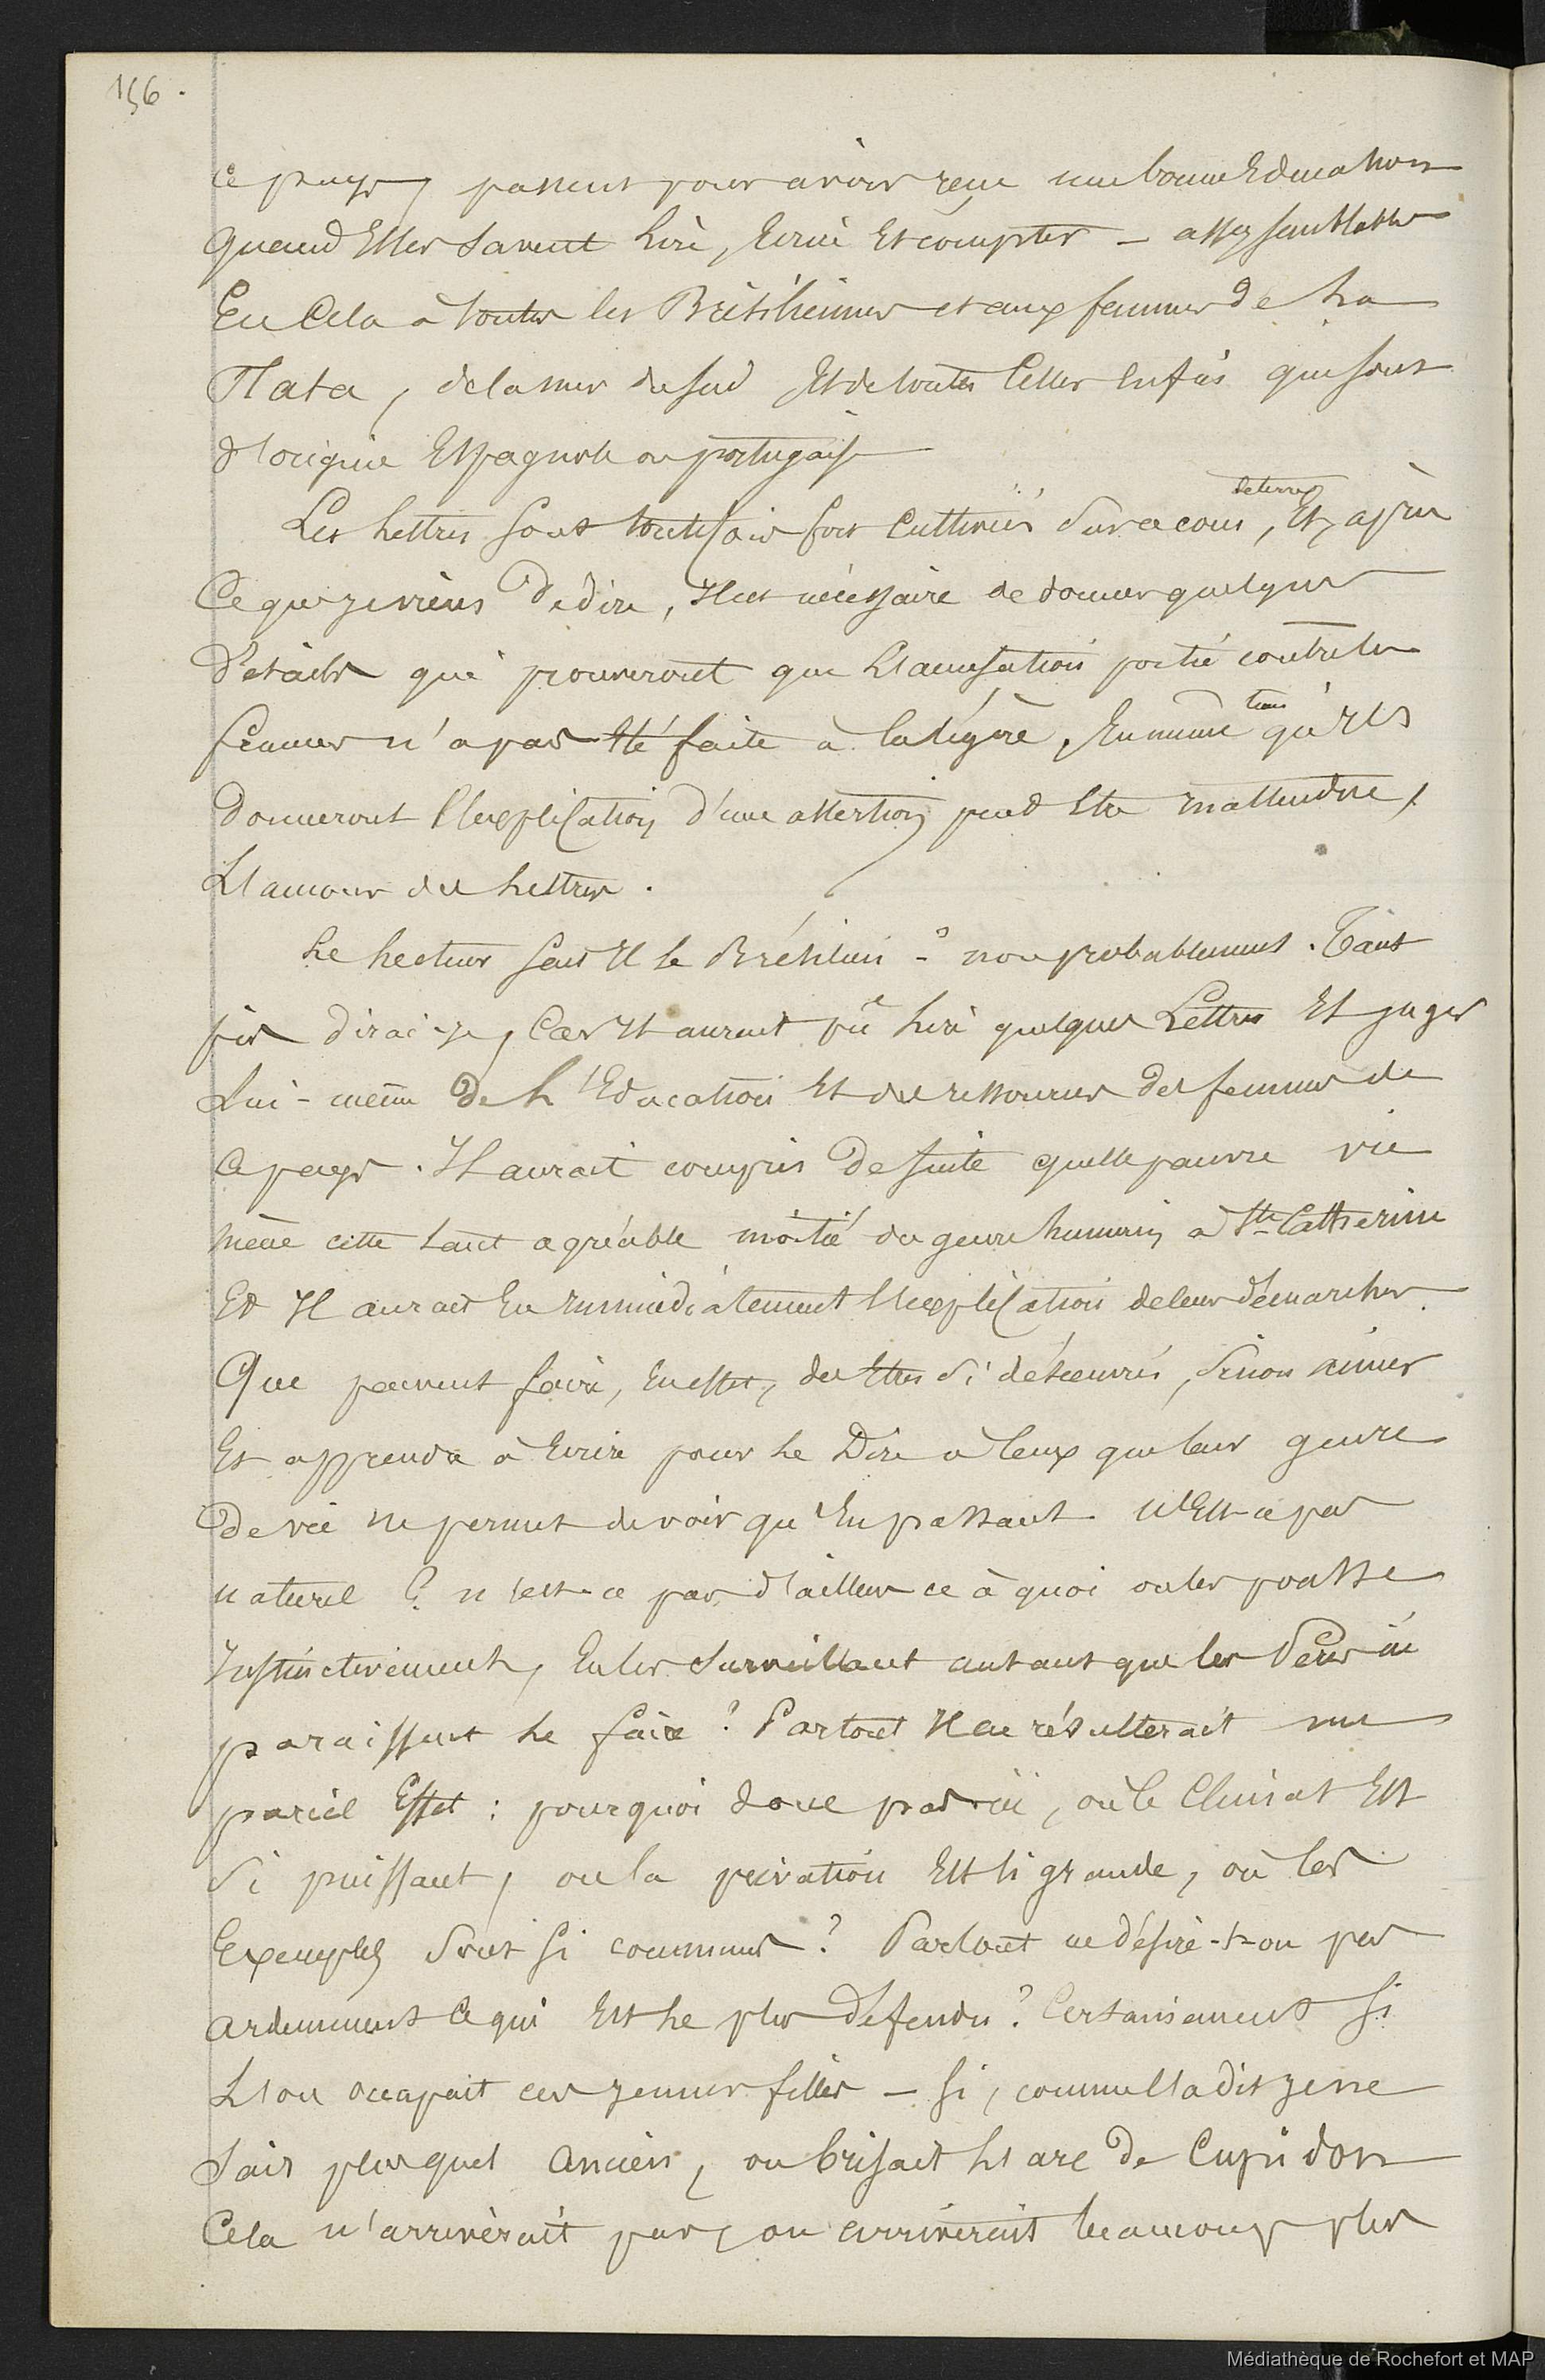 156.
ce pays, passent pour avoir reçu une bonne Education
quand Elles savent Lire, Ecrire Et compter – assez semblables
En Cela à toutes les Brésiliennes et aux femmes de La
Plata, de la mer du sud Et de toutes Celles enfin qui sont
d'origine Espagnole ou portugaise
de terre
Les Lettres sont toutefois fort Cultivées sur ce coin, Et, après
Ce que je viens de dire, Il est nécessaire de donner quelques
Détails qui prouveront que L'accusation portée contre les
femmes n'a pas Eté faite à la légère, En même tems qu'Ils
Donneront l'explication d'une assertion peut Etre inattendue,
L'amour des Lettres.
Le Lecteur sait Il le Brésilien - ? non probablement. Tant
pis dirai-je, Car Il aurait pû Lire quelques Lettres Et juger
Lui-même De L'Education Et des ressources des femmes de
Ce pays. Il aurait compris De suite quelle pauvre vie
mène cette tant agréable moitié du genre humain à Ste Catherine
Et Il aurait Eu Immédiatement l'explication de leurs démarches.
Que peuvent faire, En effet, des Etres si désœuvrés, sinon aimer
Et apprendre à Ecrire pour Le Dire à Ceux que leur genre
De vie ne permet de voir qu'En passant. N'Est-ce pas
naturel ? n'est-ce pas d'ailleurs ce à quoi on les pousse
Instinctivement, En les surveillant autant que les Pères ici
paraissent Le faire ? Partout Il en résulterait un
pareil Effet : pourquoi donc pas ici, où le Climat Est
si puissant, où la privation Est si grande, où les
Exemples sont si communs ? Partout ne désire-t-on pas
ardemment Ce qui Est Le plus défendu ? Certainement si
L'on occupait ces jeunes filles – si, comme l'a dit je ne
sais plus quel ancien, on brisait L'arc de Cupidon
Cela n'arriverait pas, ou arriverait beaucoup plus
Médiathèque de Rochefort et MAP